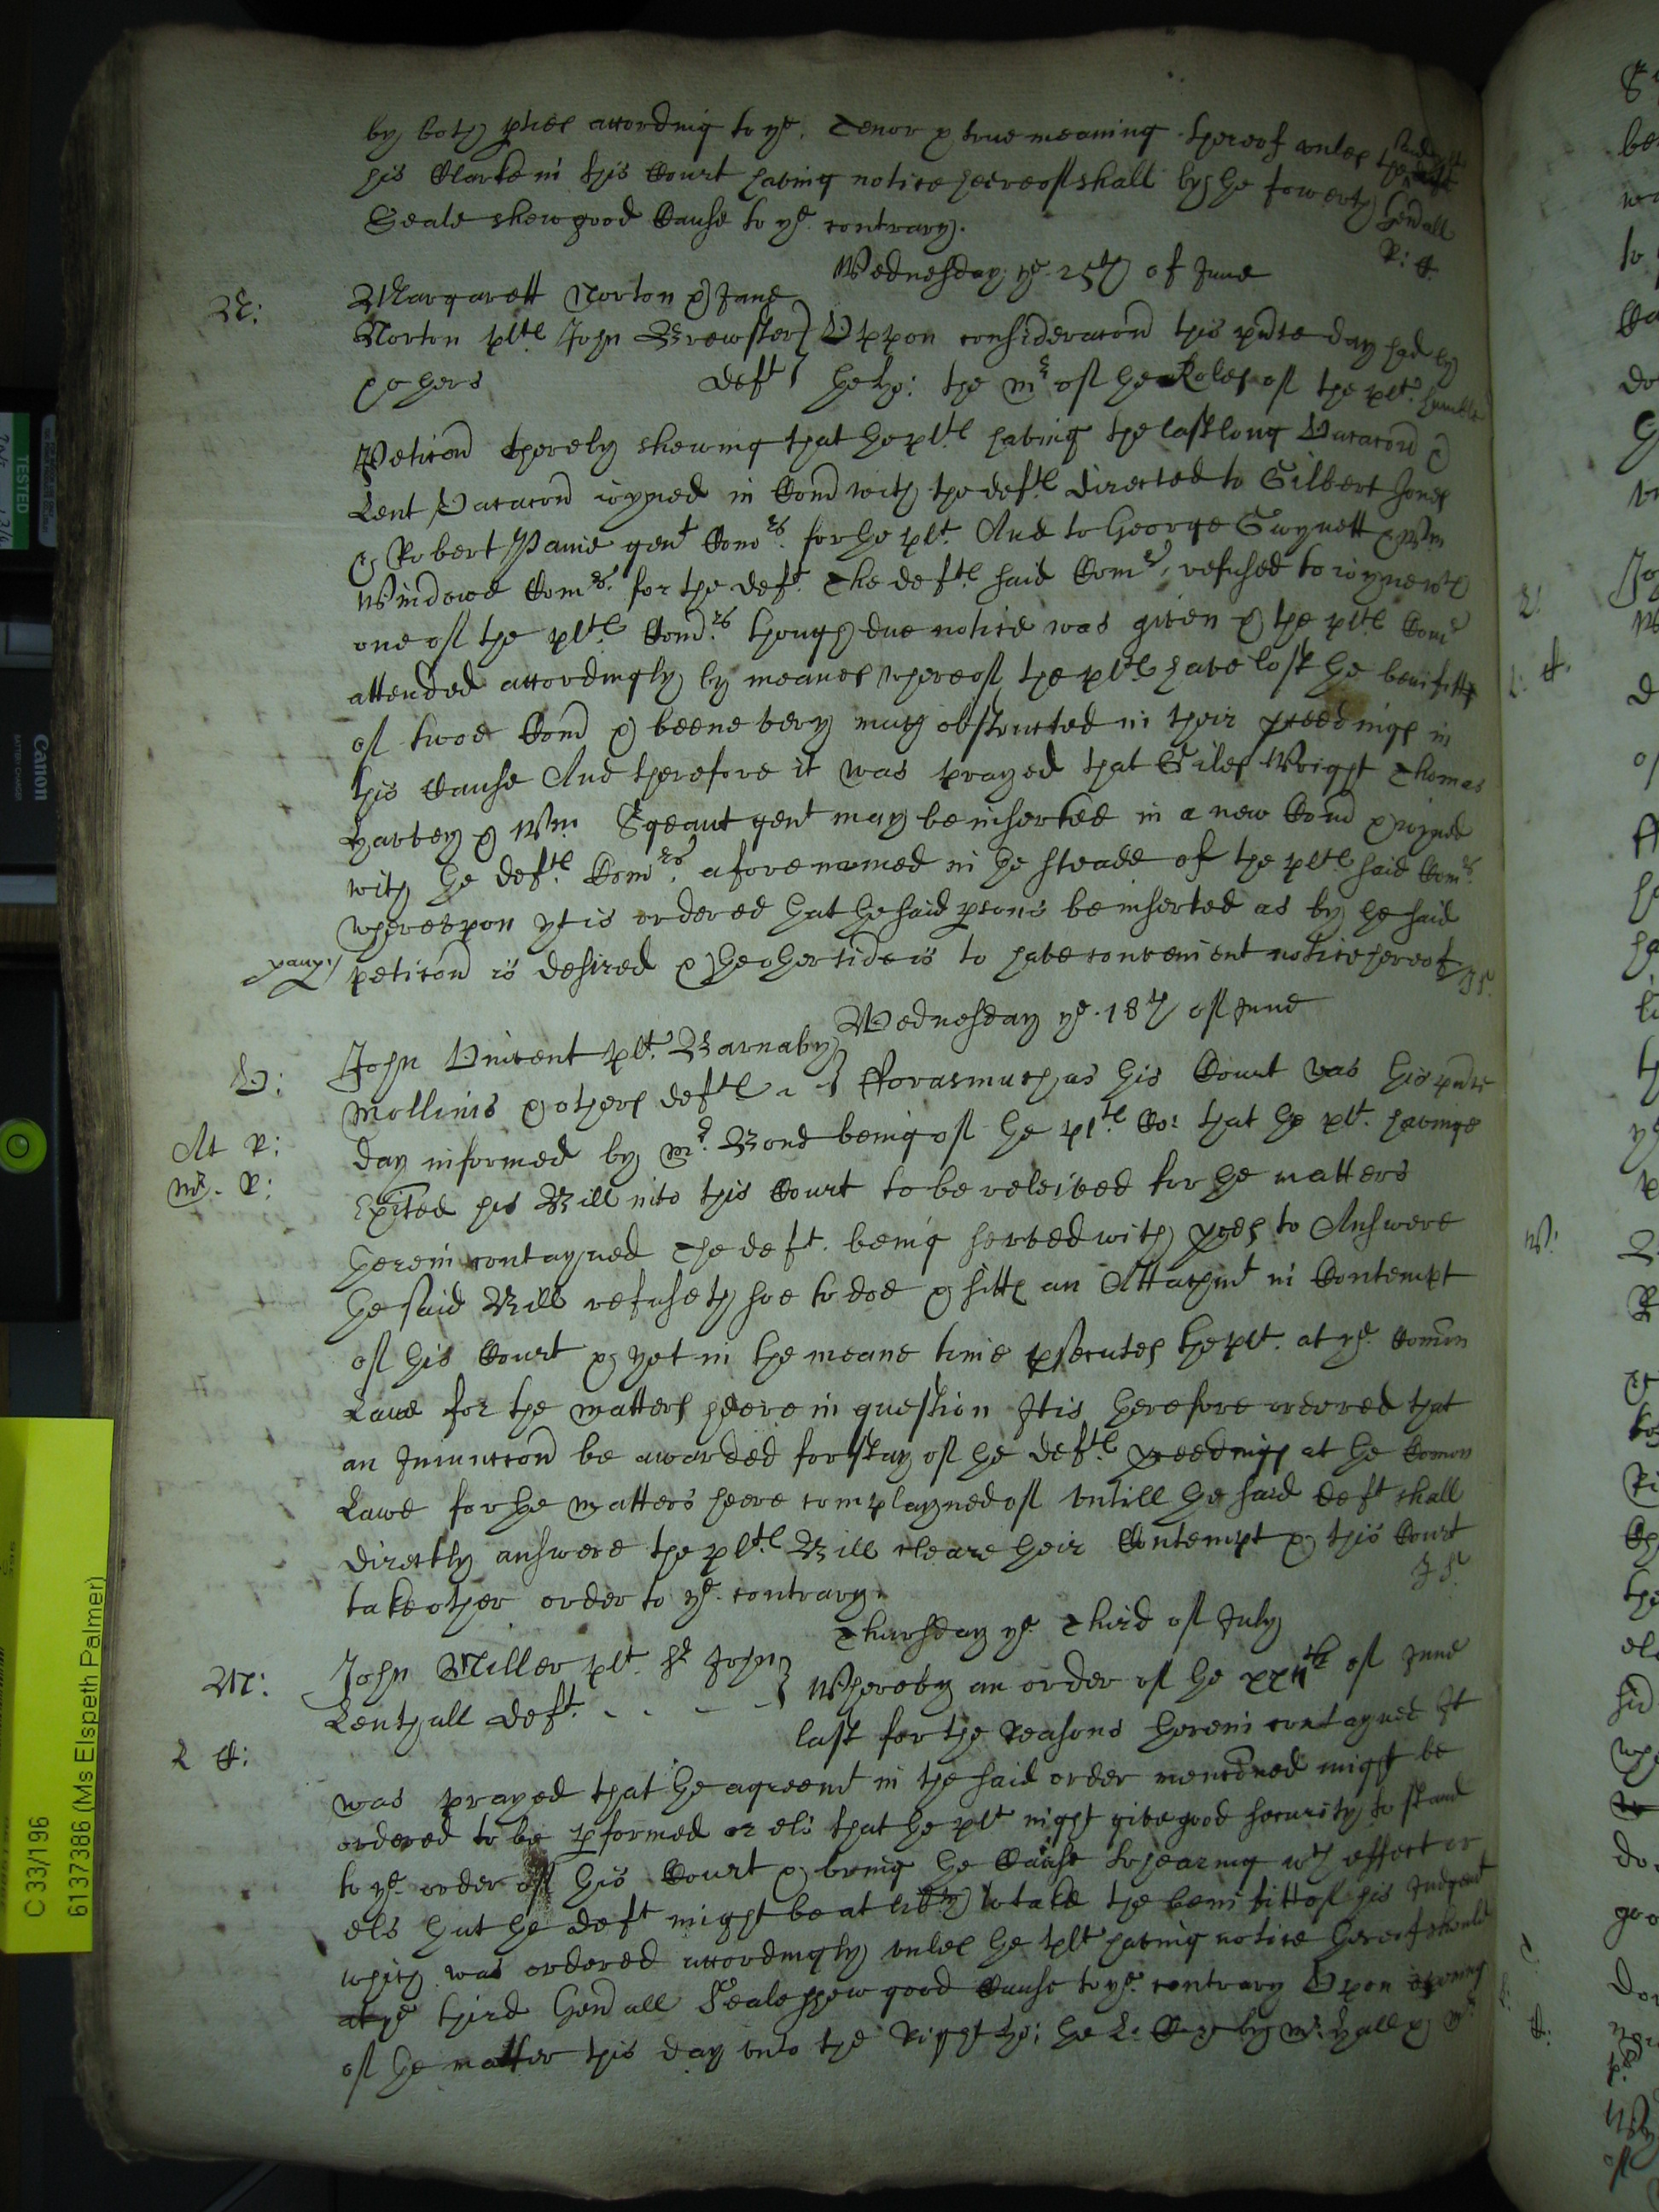 by both pties according to ye. Tenor & true meaning thereof unles the
his Clarke in this Court having notice hereof shall by the fowerth Gendall
Seale shew good Cause to ye. contrary.
R: C.
Wednesday ye 25th of June
N:
Margarett Norton & Jane
Norton plts John Brewster } Uppon consideracon this pnte day had by
& others deft } the ho: the Mr of the Roles of the plts humble
Peticon thereby shewing that the plts having the last long Vacacon &
Lent Vacacon ioyned in Comd with the defts directed to Gilbert Jones
& Robert Pame gent Comrs. for the plt. And to George Gwynett & Wm
Windowe Comrs. for the deft. The defts said Comrs. refused to ioyne wth
one of the plts Comrs though due notice was given & the plts Comrs
attended accordingly by meanes whereof the plts have lost the benifitt
of twoe Comd & beene very much obstructed in their pceedings in
this Cause And therefore it was prayed that Giles Wright Thomas
Harvey & Wm gent may be inserted in a new Comd & ioyned
with the defts Comrs. aforenamed in the steade of the plts said Comrs.
whereupon yt is ordered that the said psons be inserted as by the said
peticon is desired & the other side is to have convenient notice hereof
JS.
Wednesday ye. 18th of June
V:
John Vincent plt. Barnaby }
Mollinis & others defts } Fforasmuch as this Court was this pnte
At R:
day informed by Mr. Bond being of the plts Co: that the plt. havinge
Mr. R:
Exhited his Bill into this Court to be releived for the matters
therein contayned The deft. being served with pces to Answere
the said Bill refuseth soe to doe & sitts an Attachmt in Contempt
of this Court & yet in the meane time psecutes the plt. at ye. Comon
Lawe for the matters heere in question It is therefore ordered that
an Iniunccon be awarded for stay of the defts pceedings at the Comon
Lawe for the matters heere complayned of untill the said deft shall
directly answere the plts Bill cleare their Contempt & this Court
take other order to ye. contrary.
JS.
Thursday ye Third of July
M:
John Miller plt. Sr John }
Lenthall deft. - - - } Whereby an order of the xxiith of June
last for the reasons therein contayned It
L C:
was prayed that the agreemt in the said order mencioned might be
ordered to be pformed or els that the plt might give good security to stand
to ye. order of this Court & bring the Cause to hearing wth effect or
els that the deft might be at libty to take the benifitt of his Judgemt
which was ordered accordingly unles the plt having notice thereof should
at ye third Gendall Seale shew good Cause to ye. contrary Upon opening
of the matter this day unto the Right ho: the L. by Mr. Hall & Mr
C 33/196
6137386 (Ms Elspeth Palmer)
Canon
BATTERY CHARGER
TESTED